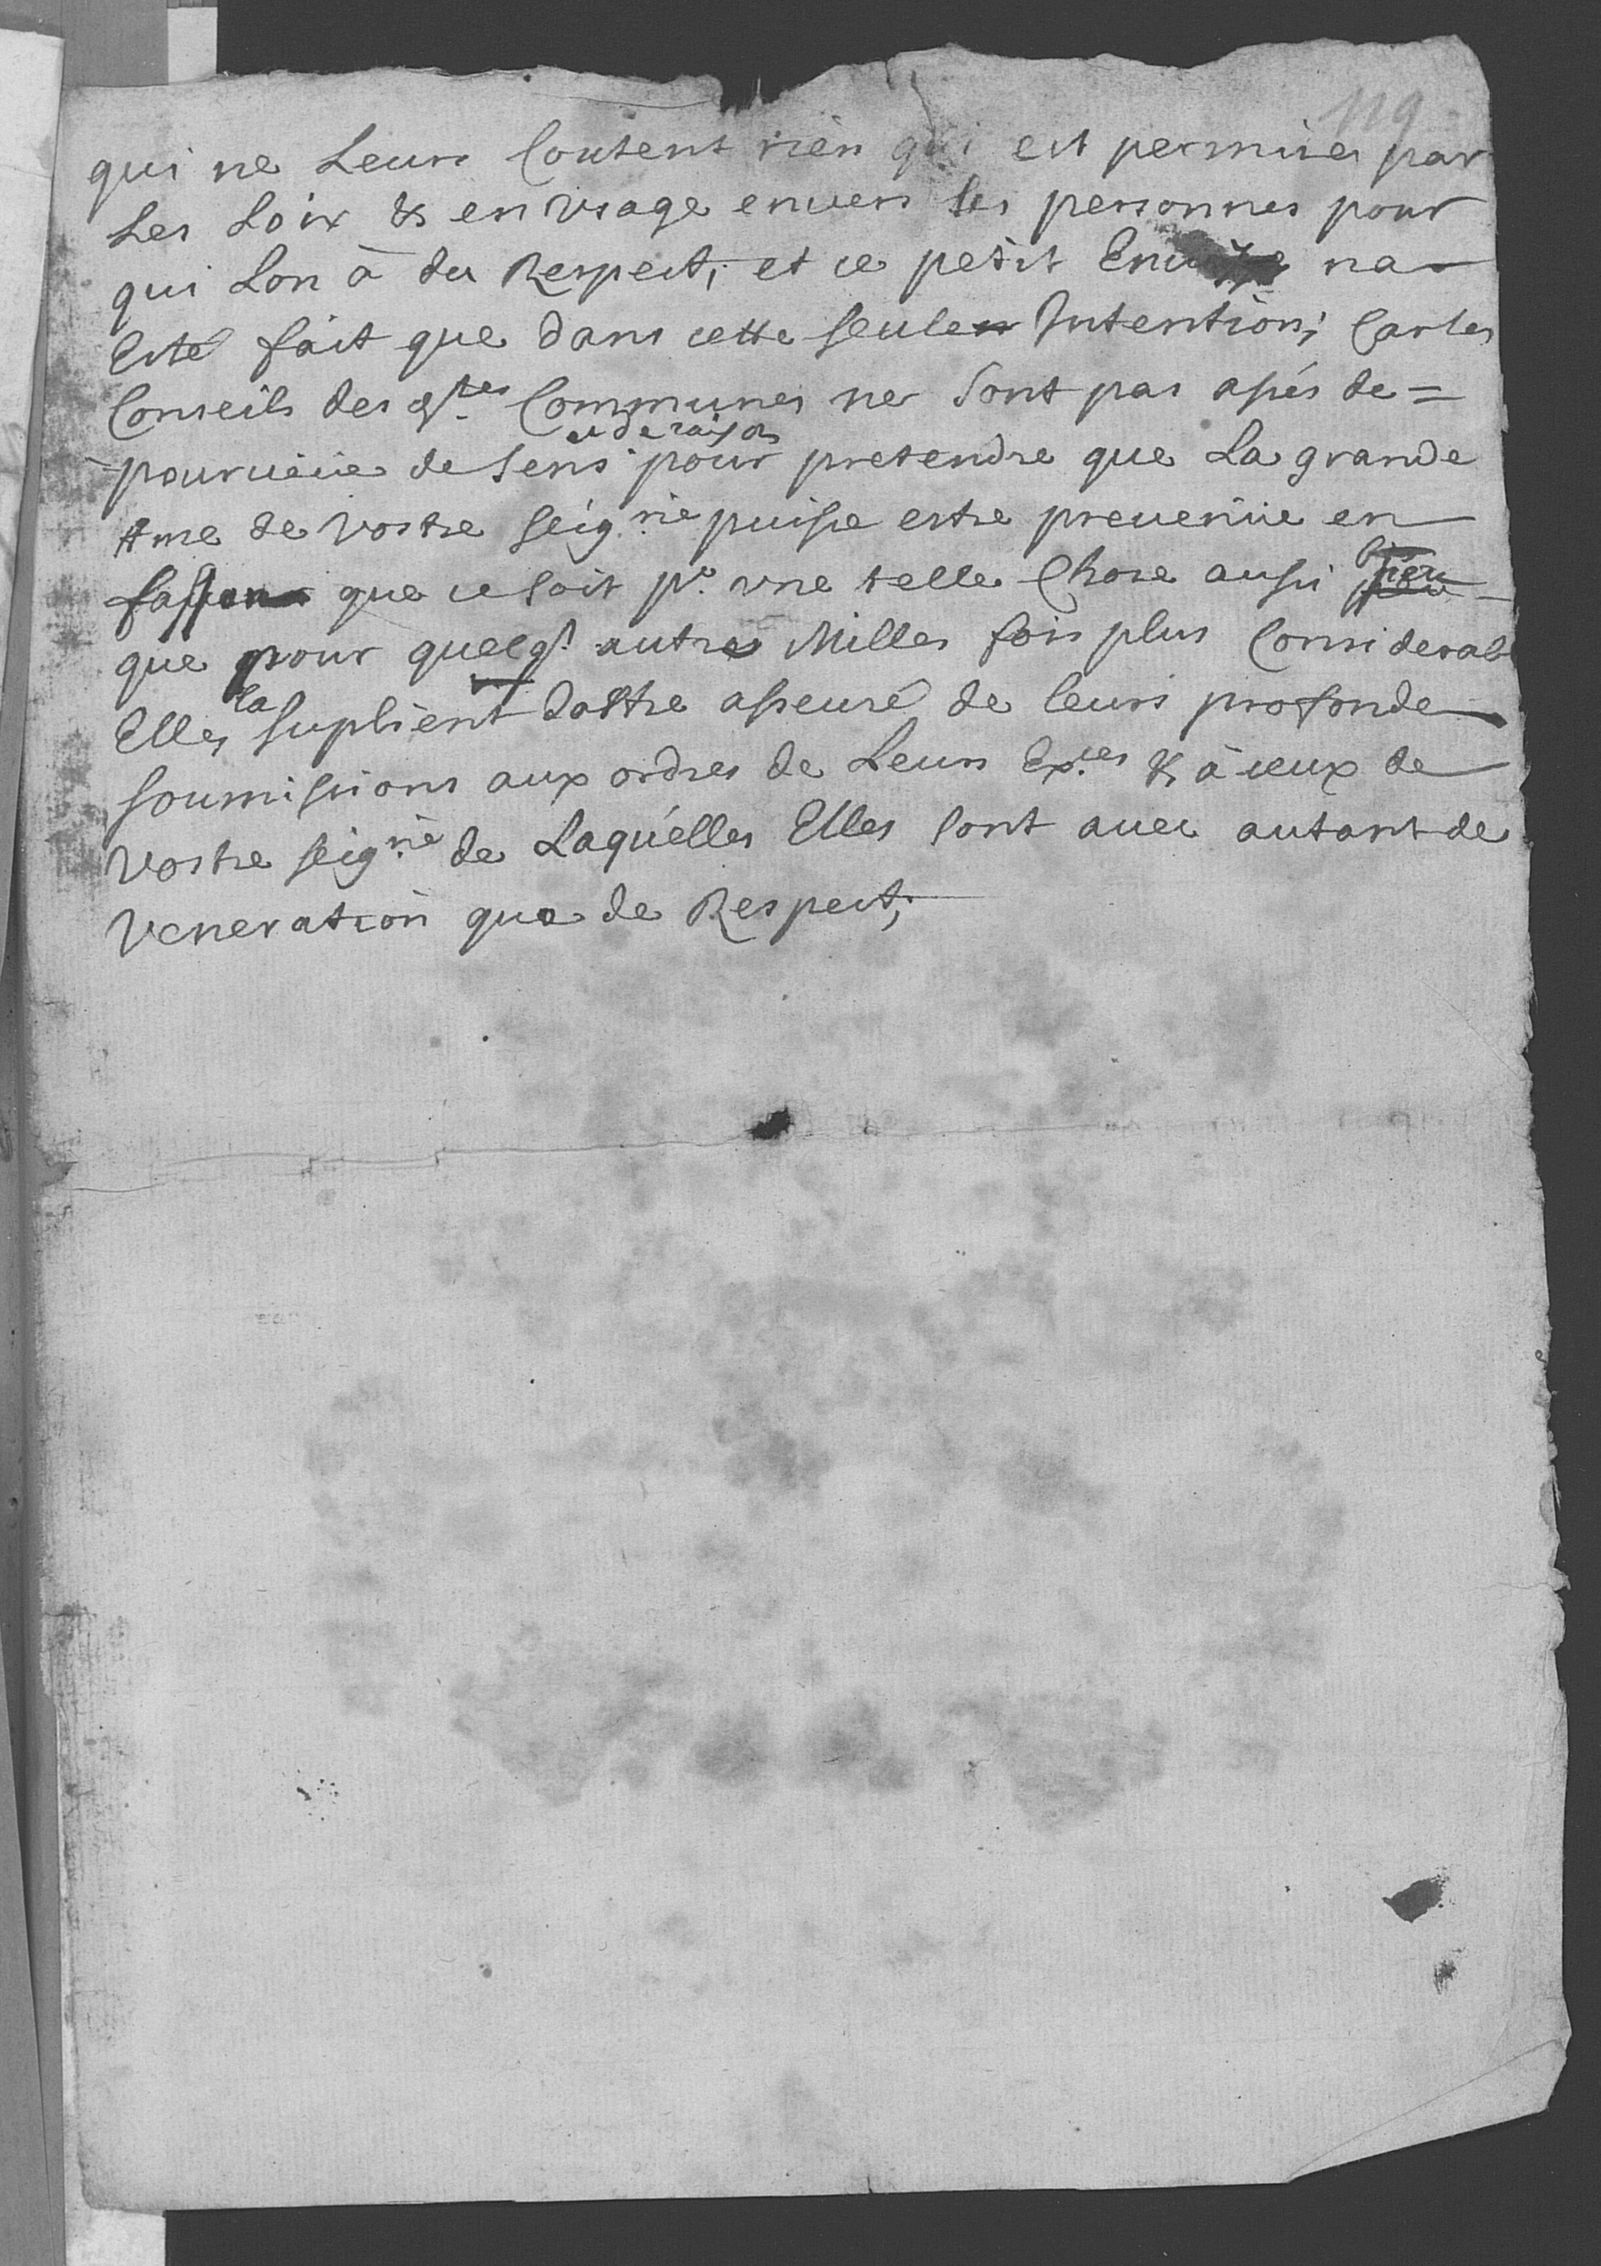 119
qui ne Leurs Coutent rien qui est permises par
Les Loix & en Vsage envers les personnes pour
qui Lon à du Respect, et ce petit Envoÿe na
Esté fait que dans cette seule Intention; Car les
Conseils des dtes Communes ne sont pas assés de=
pourueüe de sens et de raison pour pretendre que La grande
Ame de Vostre seigrie puisse estre preuenüe en
fasson que ce soit pr vne telle Chose aussi bien
que pour quelqe autre Milles fois plus Considerab
Elles la suplient dastre asseuré de leurs profonde
soumissions aux ordres de Leurs Exces & à ceux de
Vostre seigrie de Laquelles Elles sont auec autant de
Veneration que de Respect;